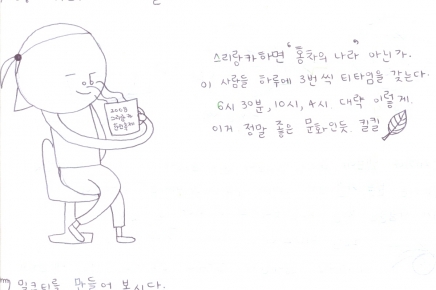 스리랑카하면 "홍차의 나라" 아닌가.
이 사람들 하루에 3번씩 티타임을 갖는다.
6시 30분, 10시, 4시 대략 이렇게.
이거 정말 좋은 문화인듯. 킬킬
밀크티를 만들어 봅시다.